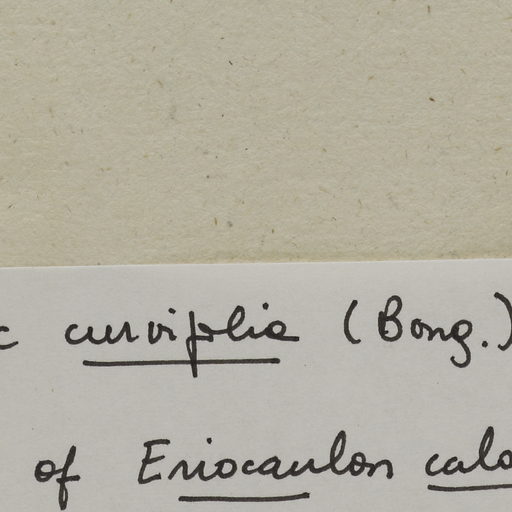 curvifolia (Bong.)
of Eriocaulon calo